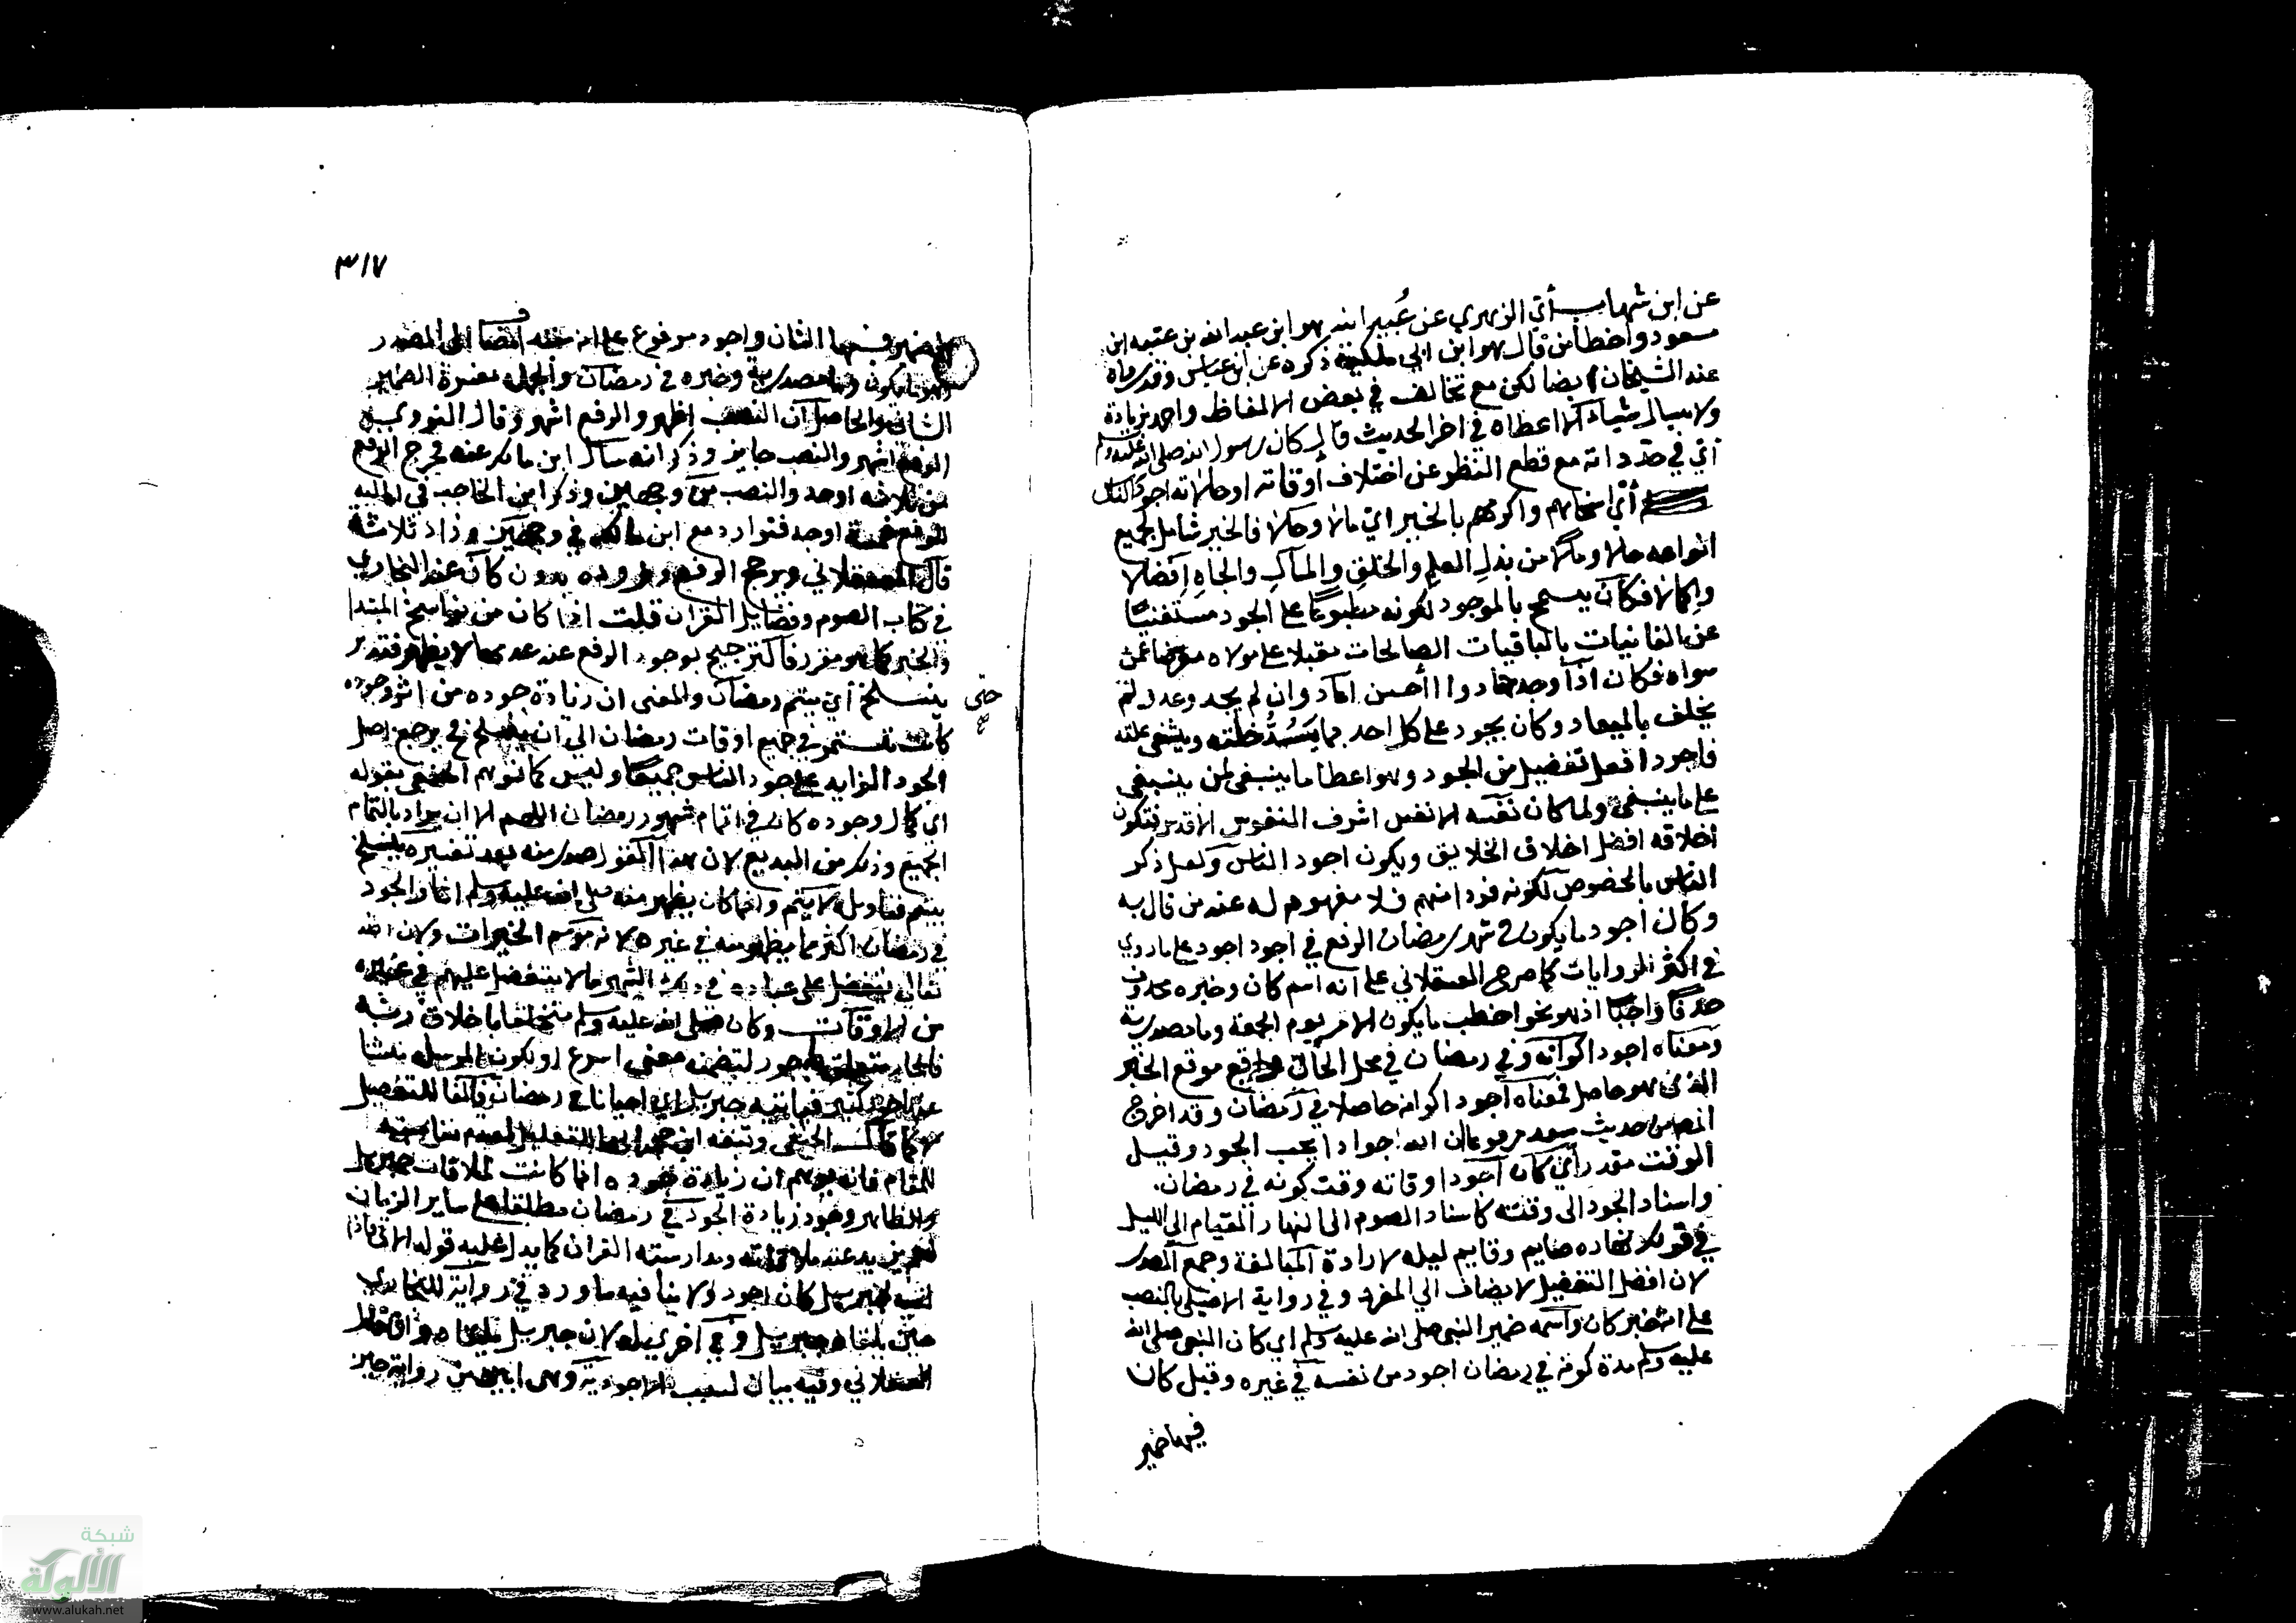 عن ابن شهاب أي الزهري عن عُبيد الله هو ابن عبد الله بن عتبة ابن
مسعود واخطأ من قال هو ابن ابي مليكة ذكره عن ابن عباس وقد رواه
عند الشيخان ايضا لكن مع تخالف في بعض الالفاظ واحمد بزيادة
ولا يسال شيأ الا اعطاه في اخر الحديث قال كان رسول الله صلى الله عليه وسلم
أي في حد ذاته مع قطع النظر عن اختلاف أوقاته اوحالاته اجود الناس
أي اسخاهم واكرمهم بالخير اي مالا وحالا فالخير شامل لجميع
انواعه حالا ومالا من بذل العلم والخلق والمال والجاه إفضالا
وإكمالا فكان يسمح بالموجود لكونه مطبوعا على الجود مستغنيا
عن الفانيات بالباقيات الصالحات مقبلا على مولاه معرضا عمن
سواه فكان اذا وجد جاد واأحسن اعاد وان لم يجد وعد ولم
يخلف بالميعاد وكان يجود على كل احد بما يَسُدُّ خلته ويشفي علته
فاجود افعل تفضيل من الجود وهو اعطا ما ينبغي لمن ينبغي
على ما ينبغي ولما كان نفسه الانفس اشرف النفوس الاقدس فتكون
اخلاقه افضل اخلاق الخلايق ويكون اجود الناس ولعل ذكر
الناس بالخصوص لكونه فردا منهم فلا مفهوم له عند من قال به
وكان اجود ما يكون في شهر رمضان الرفع في اجود اجود على ما روي
في اكثر الروايات كما صرح العسقلاني على انه اسم كان وخبره محذوف
حذفا واجبا اذ هو نحو اخطب ما يكون الامر يوم الجمعة وما مصدرية
ومعناه اجود اكوانه وفي رمضان في محل الحال واقع موقع الخبر
الذي هو حاصل فمعناه أجود اكوانه حاصلا في رمضان وقد اخرج
المص من حديث سعد مرفوعا ان الله جوادا يحب الجود وقيل
الوقت مقدر أي كان أجود اوقاته وقت كونه في رمضان
واسناد الجود الى وقته كاسناد الصوم الى النهار والقيام الى الليل
في قولك نهاره صايم وقايم ليله لارادة المبالغة وجمع المصدر
لان افضل التفضيل لا يضاف الي المفرد وفي رواية الاصيلي بالنصب
على انه خبر كان واسمه ضمير النبي صلى الله عليه وسلم اي كان النبي صلى الله
عليه وسلم مدة كونه في رمضان اجود من نفسه في غيره وقيل كان
فيها ضمير
٣١٧
الشان واجود مرفوع على انه مضافا الى المصدر
وهو ما يكون وما مصدرية وخبره في رمضان والجملة مفسرة الضمير
الشان والحاصل أن النصب اظهر والرفع اشهر وقال النووي
الرفع اشهر والنصب جايز وذكر انه سال ابن مالك عنه فخرج الرفع
من ثلاثة اوجه والنصب من وجهين وذكر ابن الحاجب في اماليه
للرفع خمسة اوجه فتوارد مع ابن مالك في وجهين وزاد ثلاثة
قال العسقلاني ويرجح الرفع وروده بدون كان عند البخاري
في كتاب الصوم وفضايل القران قلت اذا كان من نواسخ المبتدا
والخبر كما هو مقرر فاكثر ترجيح لوجود الرفع عند عدمها لا يظهر فتدبر
حتى
صح
ينسلخ أي يتم رمضان والمعنى ان زيادة جوده من اثر وجوده
كانت تستمر في جميع اوقات رمضان الي ان ينسلخ فيرجع اصل
الجود الزايد على جود الناس جميعا وليس كما توهم الحنفي بقوله
اي كمال وجوده كان في اتمام شهر رمضان اللهم الا ان يراد بالتمام
الجميع وذلك من البديع لان هذا القول صدر منه بعد تفسيره ينسلخ
بيتم فتاويله لا يتم وانما كان يظهر منه صلى الله عليه وسلم اثار الجود
في رمضان اكثر مما يظهر منه في غيره لانه موسم الخيرات ولان الله
تعالى يتفضل على عباده في ذلك الشهر ما لا يتفضل عليهم في غيره
من الاوقات وكان صلى الله عليه وسلم متخلقا باخلاق ربه
فالجار متعلق باجود لتضمنه معنى اسرع او يكون المرسلة منشا
عنه فيأتيه جبريل أي احيانا في رمضان فالفا للتفصيل
كما قال الحنفي وتبعه ابن حجر انها للتعليل لعدم مناسبته
للمقام فانه يوهم ان زيادة جوده انما كانت لملاقات جبريل
والظاهر وجود زيادة الجود في رمضان مطلقا على ساير الزمان
نعم يزيد عند ملاقاته ومدارسته القران كما يدل عليه قوله الاتي فاذا
لقيه جبريل كان اجود ولا ينافيه ما ورد في رواية للبخاري
حين يلقاه جبريل وفي أخرى له لان جبريل يلقاه
العسقلاني وفيه بيان لسبب الاجودية وهي ابين من رواية حين
شبكة
الألوكة
www.alukah.net